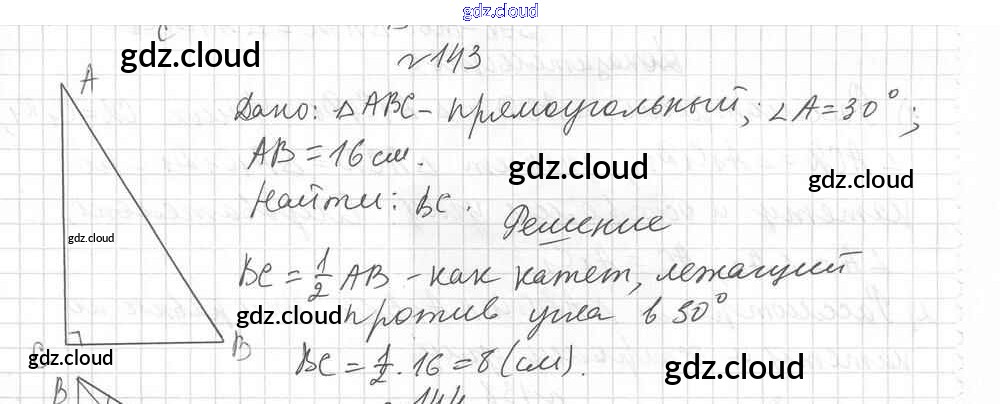 gdz.cloud
№143
gdz.cloud
A
Дано: △ABC - прямоугольный; ∠A = 30°;
AB = 16 см.
gdz.cloud
gdz.cloud
Найти: BC.
gdz.cloud
Решение
BC = 1/2 AB - как катет, лежащий
gdz.cloud
против угла в 30°
B
gdz.cloud
BC = 1/2 · 16 = 8 (см).
gdz.cloud
B
144